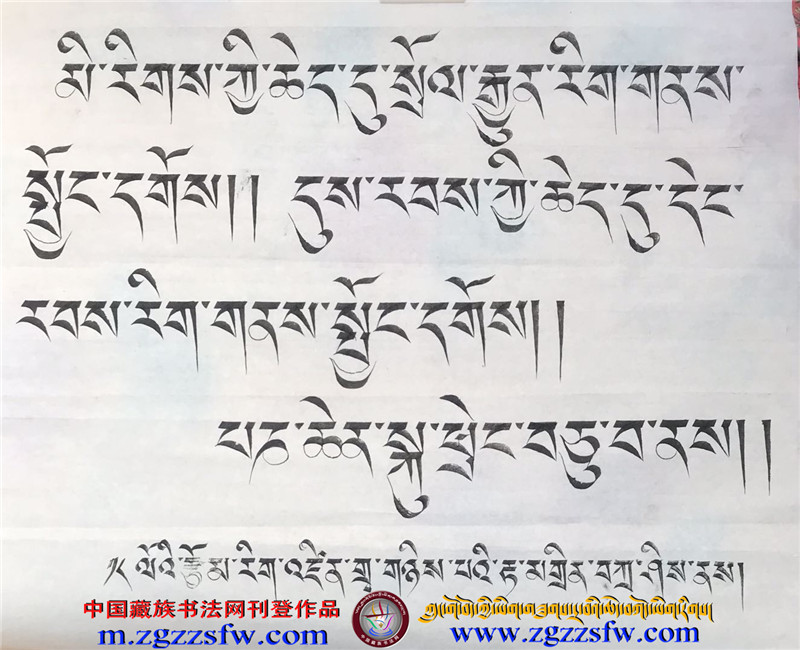 མི་རིགས་ཀྱི་ཆེད་དུ་སྲོལ་རྒྱུན་རིག་གནས་
སྤྱོང་དགོས།། དུས་རབས་ཀྱི་ཆེད་དུ་དེང་
རབས་རིག་གནས་སྤྱོང་དགོས།།
པཎ་ཆེན་སྐུ་ཕྲེང་བཅུ་བ་ནས།།
༡༨ ལོའི་རྩོམ་རིག་འཛིན་གྲྭ་གཉིས་པའི་རྟ་མགྲིན་བཀྲ་ཤིས་ནས།
中国藏族书法网刊登作品
m.zgzzsfw.com
www.zgzzsfw.com